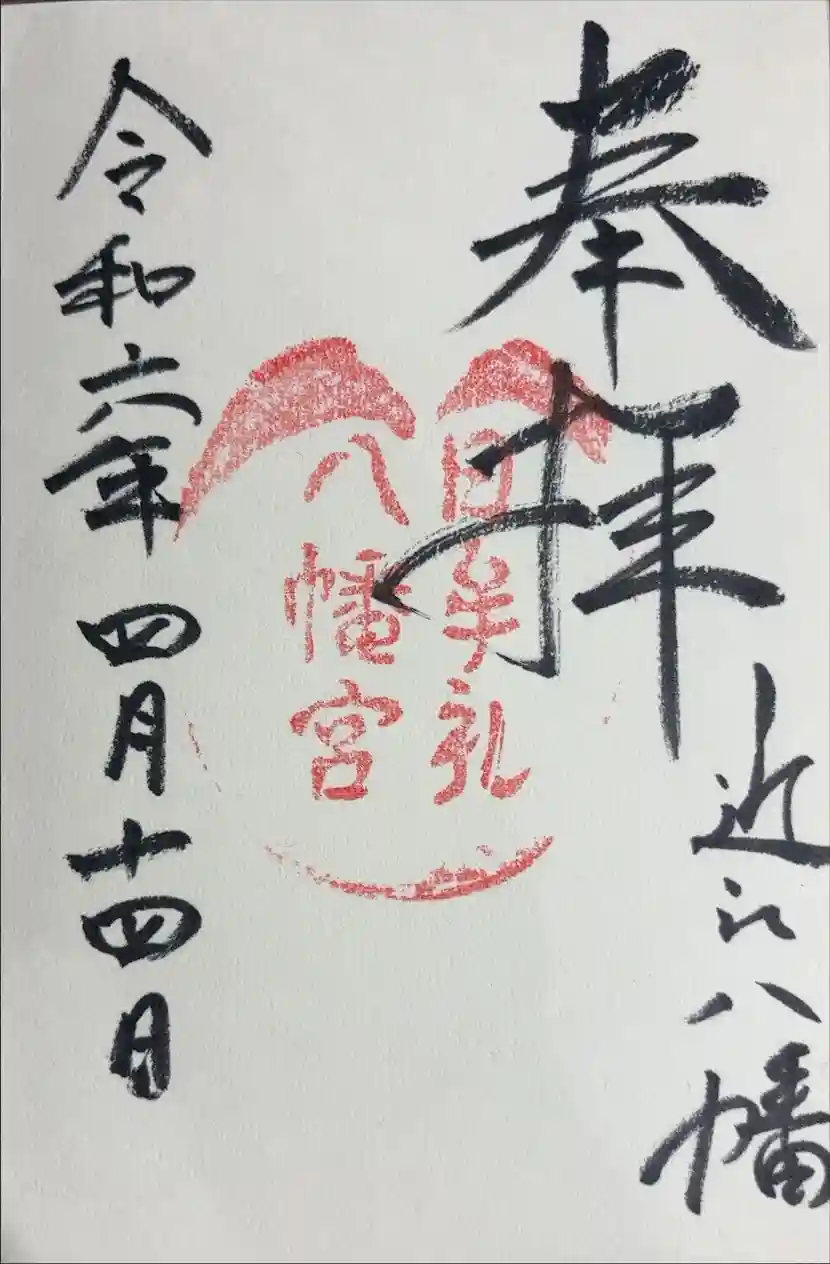 奉拝
近江八幡
日牟礼
八幡宮
令和六年四月十四日